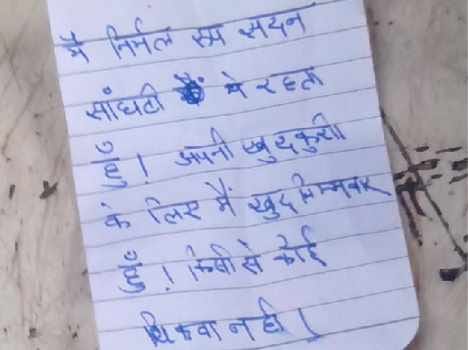 मै निर्मल रूम सदन
सांघटी में रहता
हुँ। अपनी खुदकुशी
के लिए मैं खुद जिम्मेवार
हुँ। किसी से कोई
शिकवा नही।